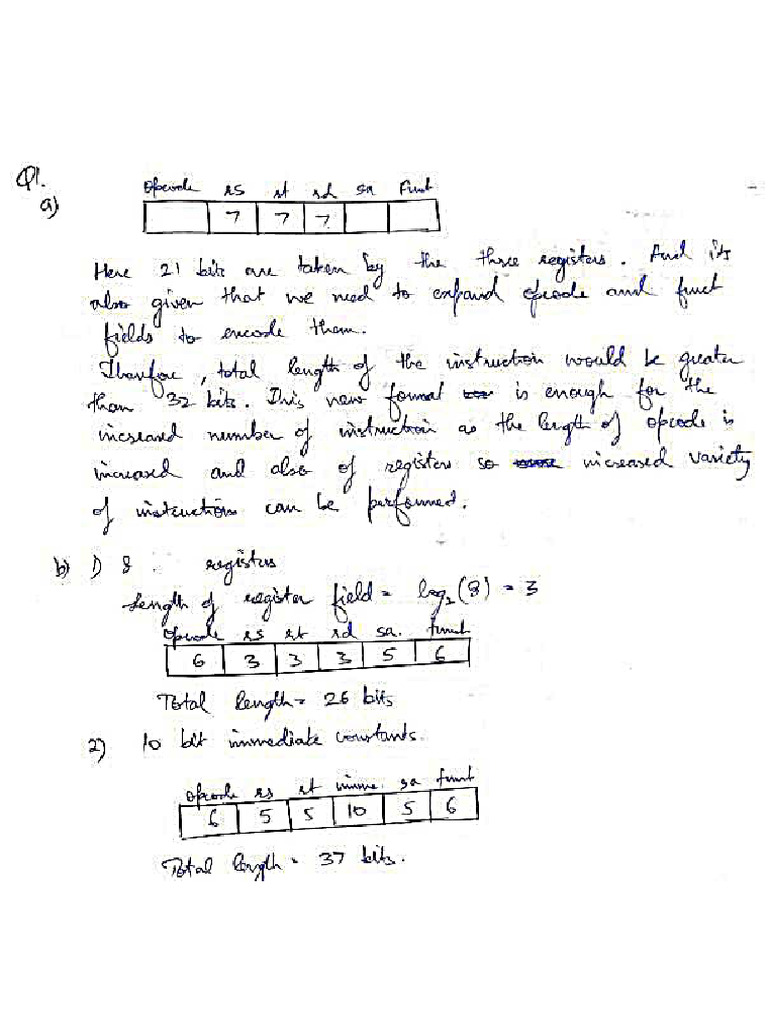 Q1.
a)
opcode rs rt rd sa Funct
7 7 7
Here 21 bits are taken by the three registers. And its
also given that we need to expand opcode and funct
fields to encode them.
Therefore, total length of the instruction would be greater
than 32 bits. This new format is enough for the
increased number of instruction as the length of opcode is
increased and also of registers so increased variety
of instructions can be performed.
b) 1) 8 registers
Length of register field = log₂(8) = 3
opcode rs rt rd sa. funct
6 3 3 3 5 6
Total length = 26 bits
2) 10 bit immediate constants.
opcode rs rt imme. sa funct
6 5 5 10 5 6
Total length = 37 bits.